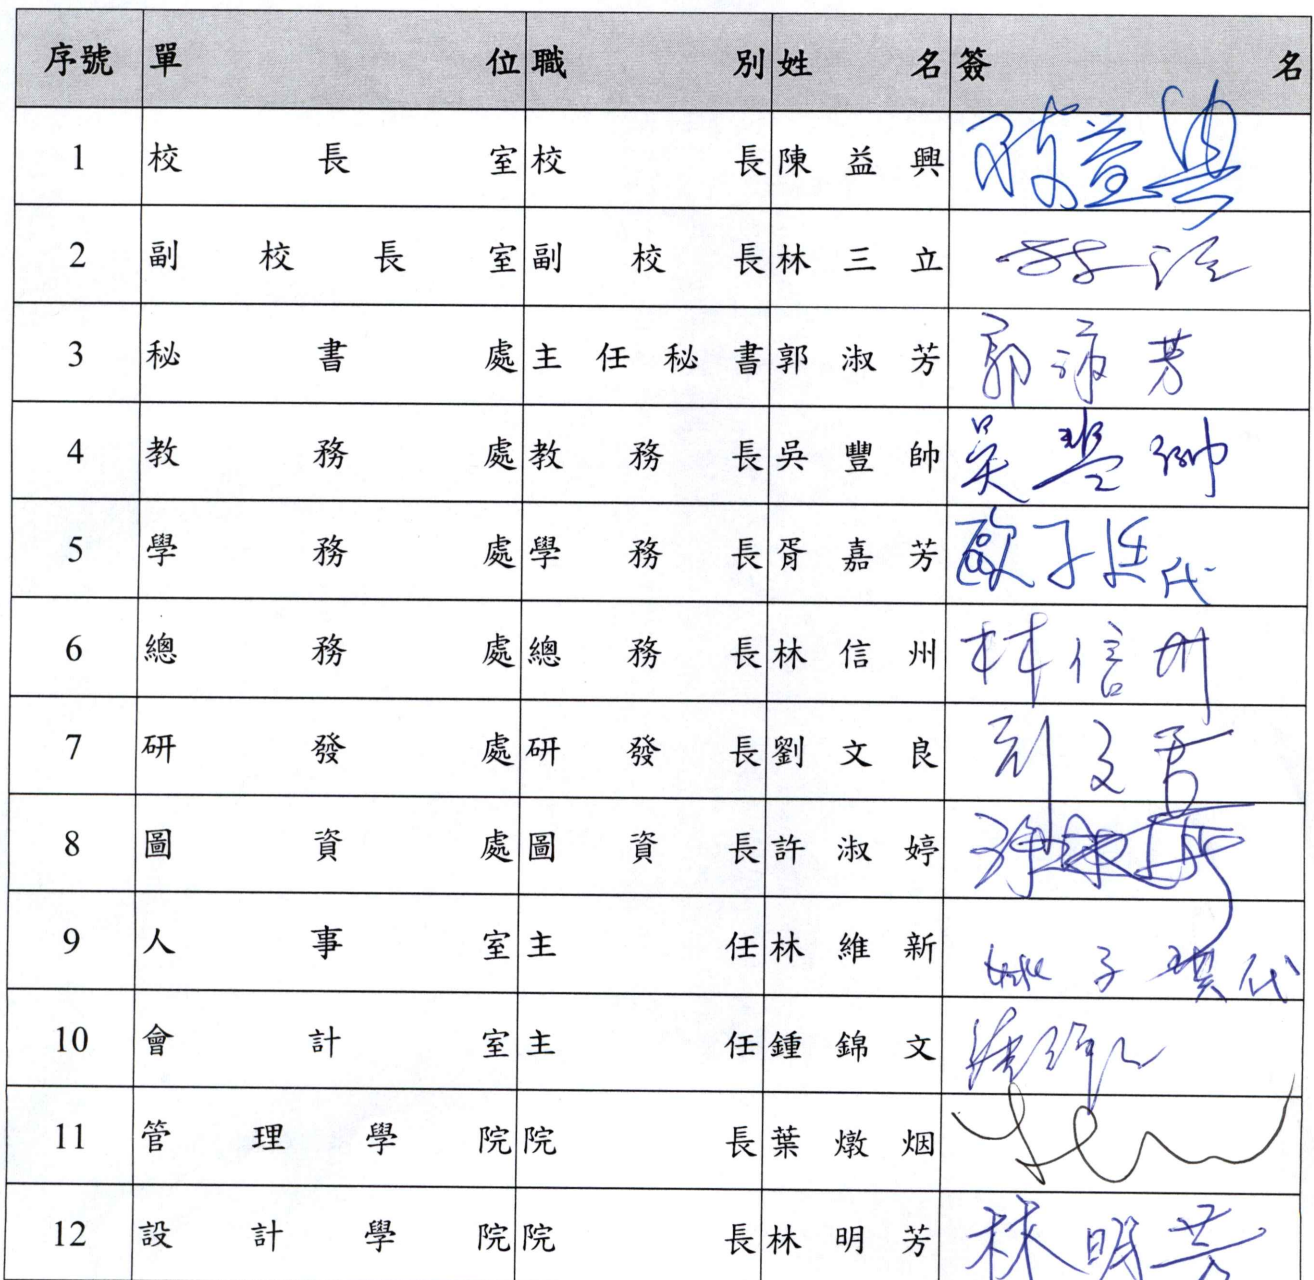 序號 單位 職別 姓名 簽名
1 校長室 校長 陳益興 陳益興
2 副校長室 副校長 林三立
3 秘書處 主任秘書 郭淑芳 郭淑芳
4 教務處 教務長 吳豐帥 吳豐帥
5 學務處 學務長 胥嘉芳 歐子廷代
6 總務處 總務長 林信州 林信州
7 研發處 研發長 劉文良 刘文良
8 圖資處 圖資長 許淑婷 許淑婷
9 人事室 主任 林維新 姚子琪代
10 會計室 主任 鍾錦文
11 管理學院 院長 葉燉烟
12 設計學院 院長 林明芳 林明芳